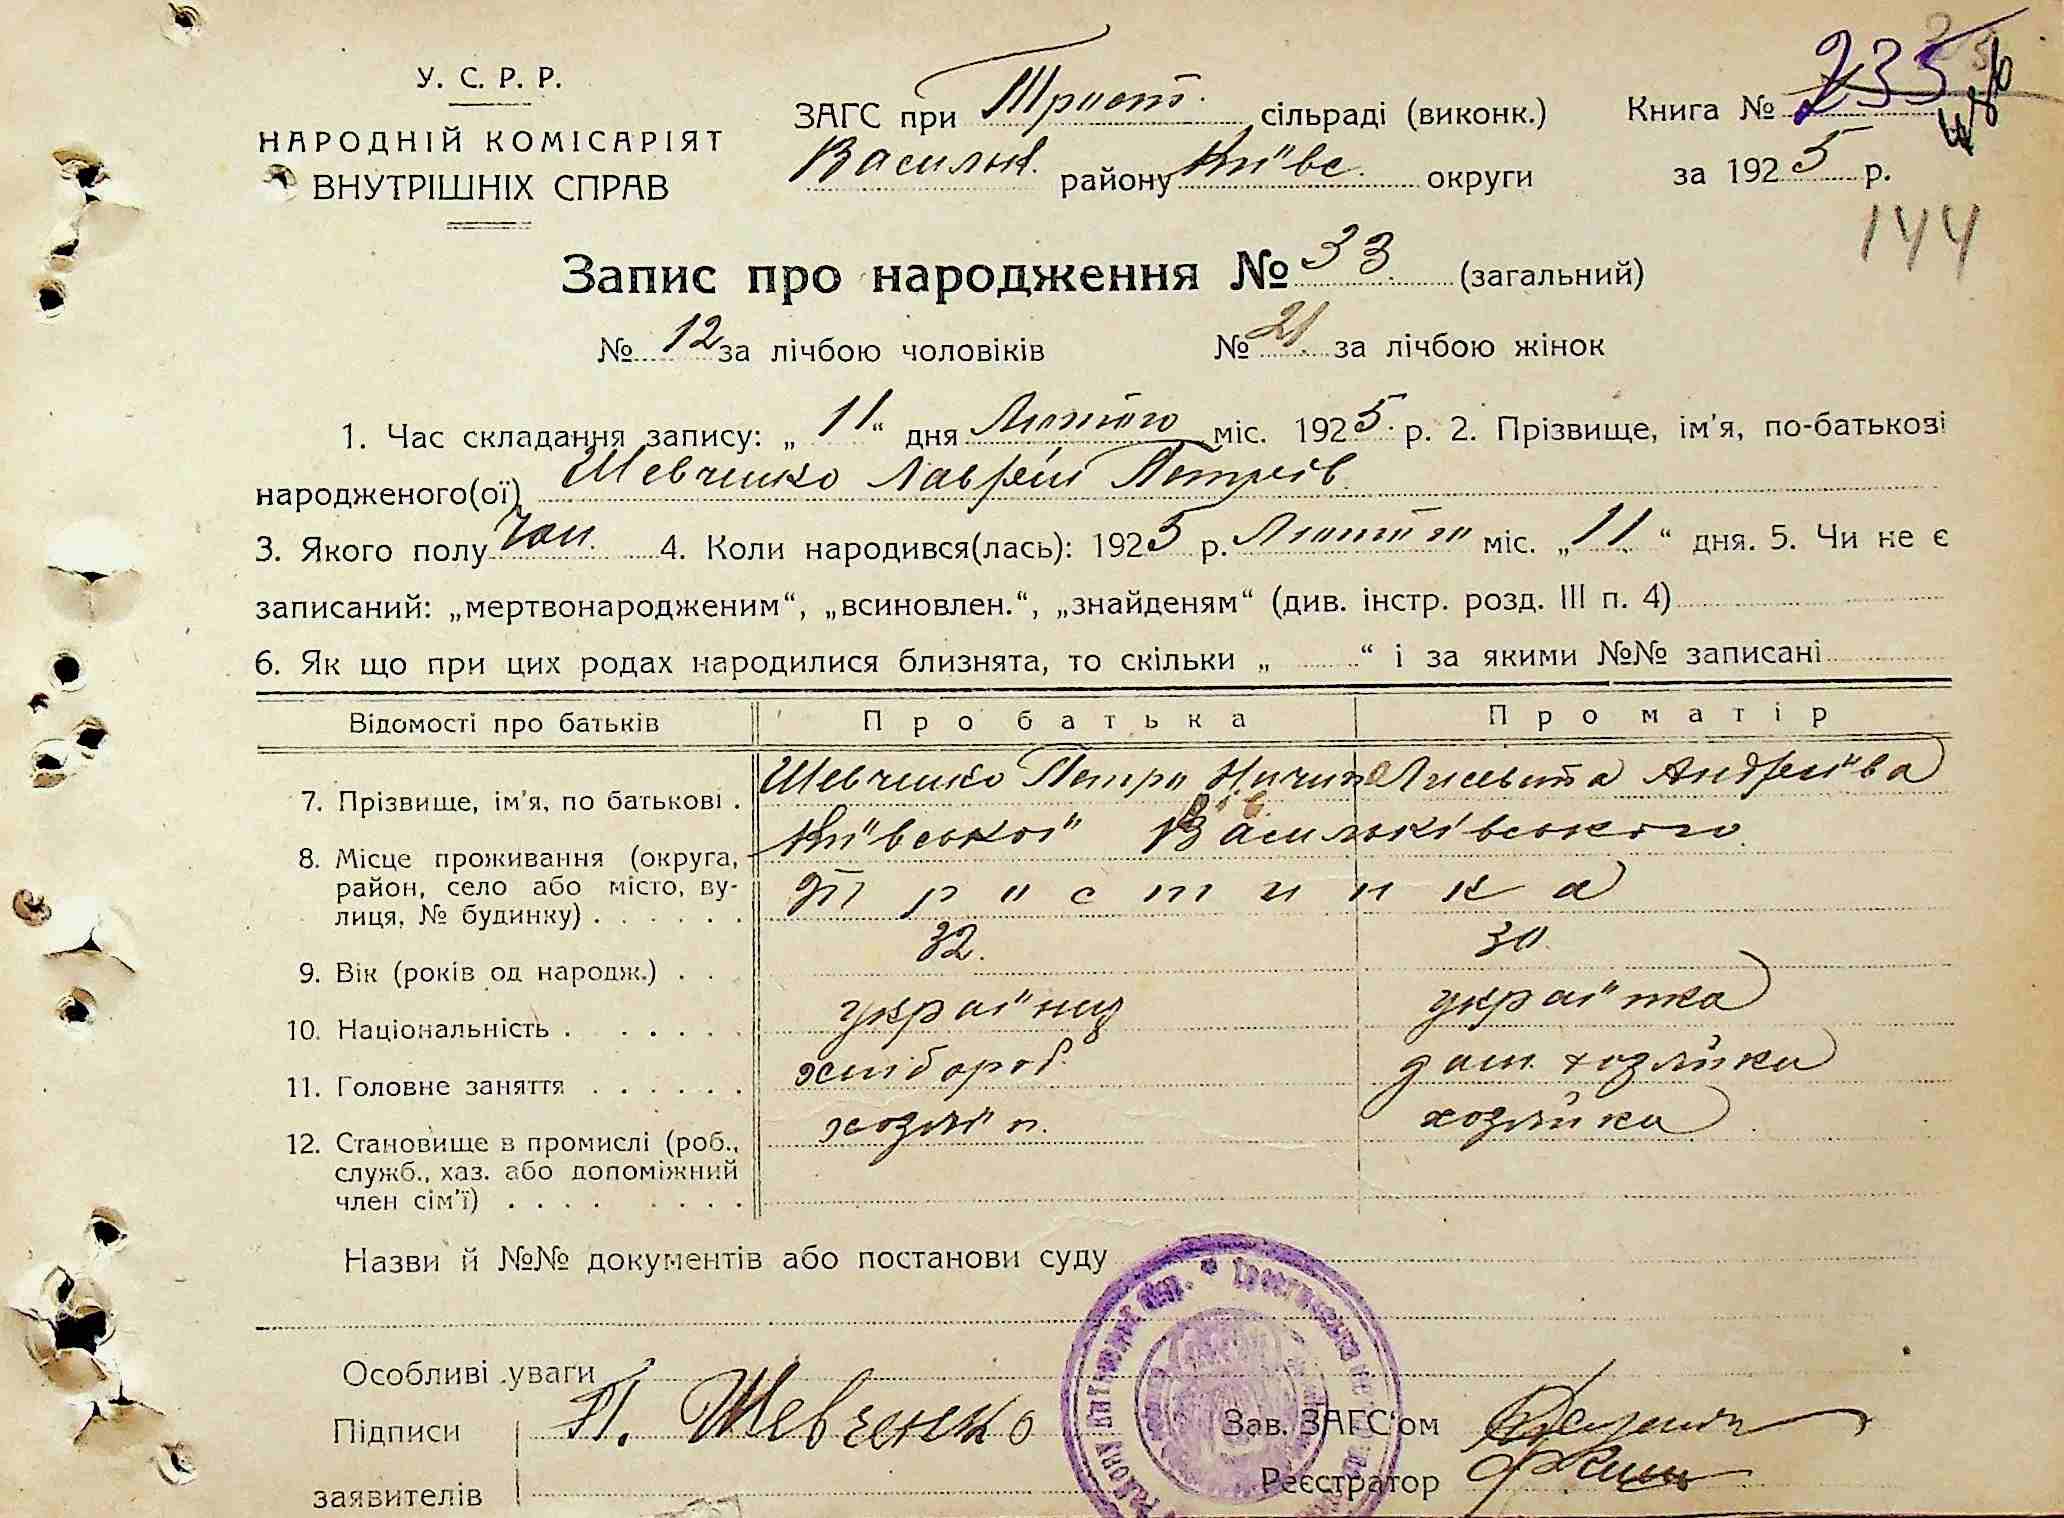 У. С. Р. Р.
НАРОДНІЙ КОМІСАРІЯТ
ВНУТРІШНІХ СПРАВ
ЗАГС при Трост. сільраді (виконк.)
Васильк. району Київс. округи
Книга № 235
за 1925 р.
144
Запис про народження № 33 (загальний)
№ 12 за лічбою чоловіків № 21 за лічбою жінок
1. Час складання запису: „ 11 “ дня Лютого міс. 1925 р. 2. Прізвище, ім'я, по-батькові
народженого(ої) Шевченко Лаврін Петрів
3. Якого полу чол. 4. Коли народився(лась): 1925 р. Лютого міс. „ 11 “ дня. 5. Чи не є
записаний: „мертвонародженим“, „всиновлен.“, „знайденям“ (див. інстр. розд. III п. 4)
6. Як що при цих родах народилися близнята, то скільки „ “ і за якими №№ записані
Відомості про батьків Про батька Про матір
7. Прізвище, ім'я, по батькові . Шевченко Петро Лисевита Андреїва
8. Місце проживання (округа, Київської Васильківського
район, село або місто, ву-
лиця, № будинку) . . . . . . Тростинка
9. Вік (років од народж.) . . . 32. 30.
10. Національність . . . . . . українц українка
11. Головне заняття . . . . . . хлібороб. дом. хозяйка
12. Становище в промислі (роб., хозяїн. хозяйка
служб., хаз. або допоміжний
член сім'ї) . . . . . . . .
Назви й №№ документів або постанови суду
Особливі уваги
Підписи П. Шевченко
заявителів
Зав. ЗАГС'ом
Реєстратор